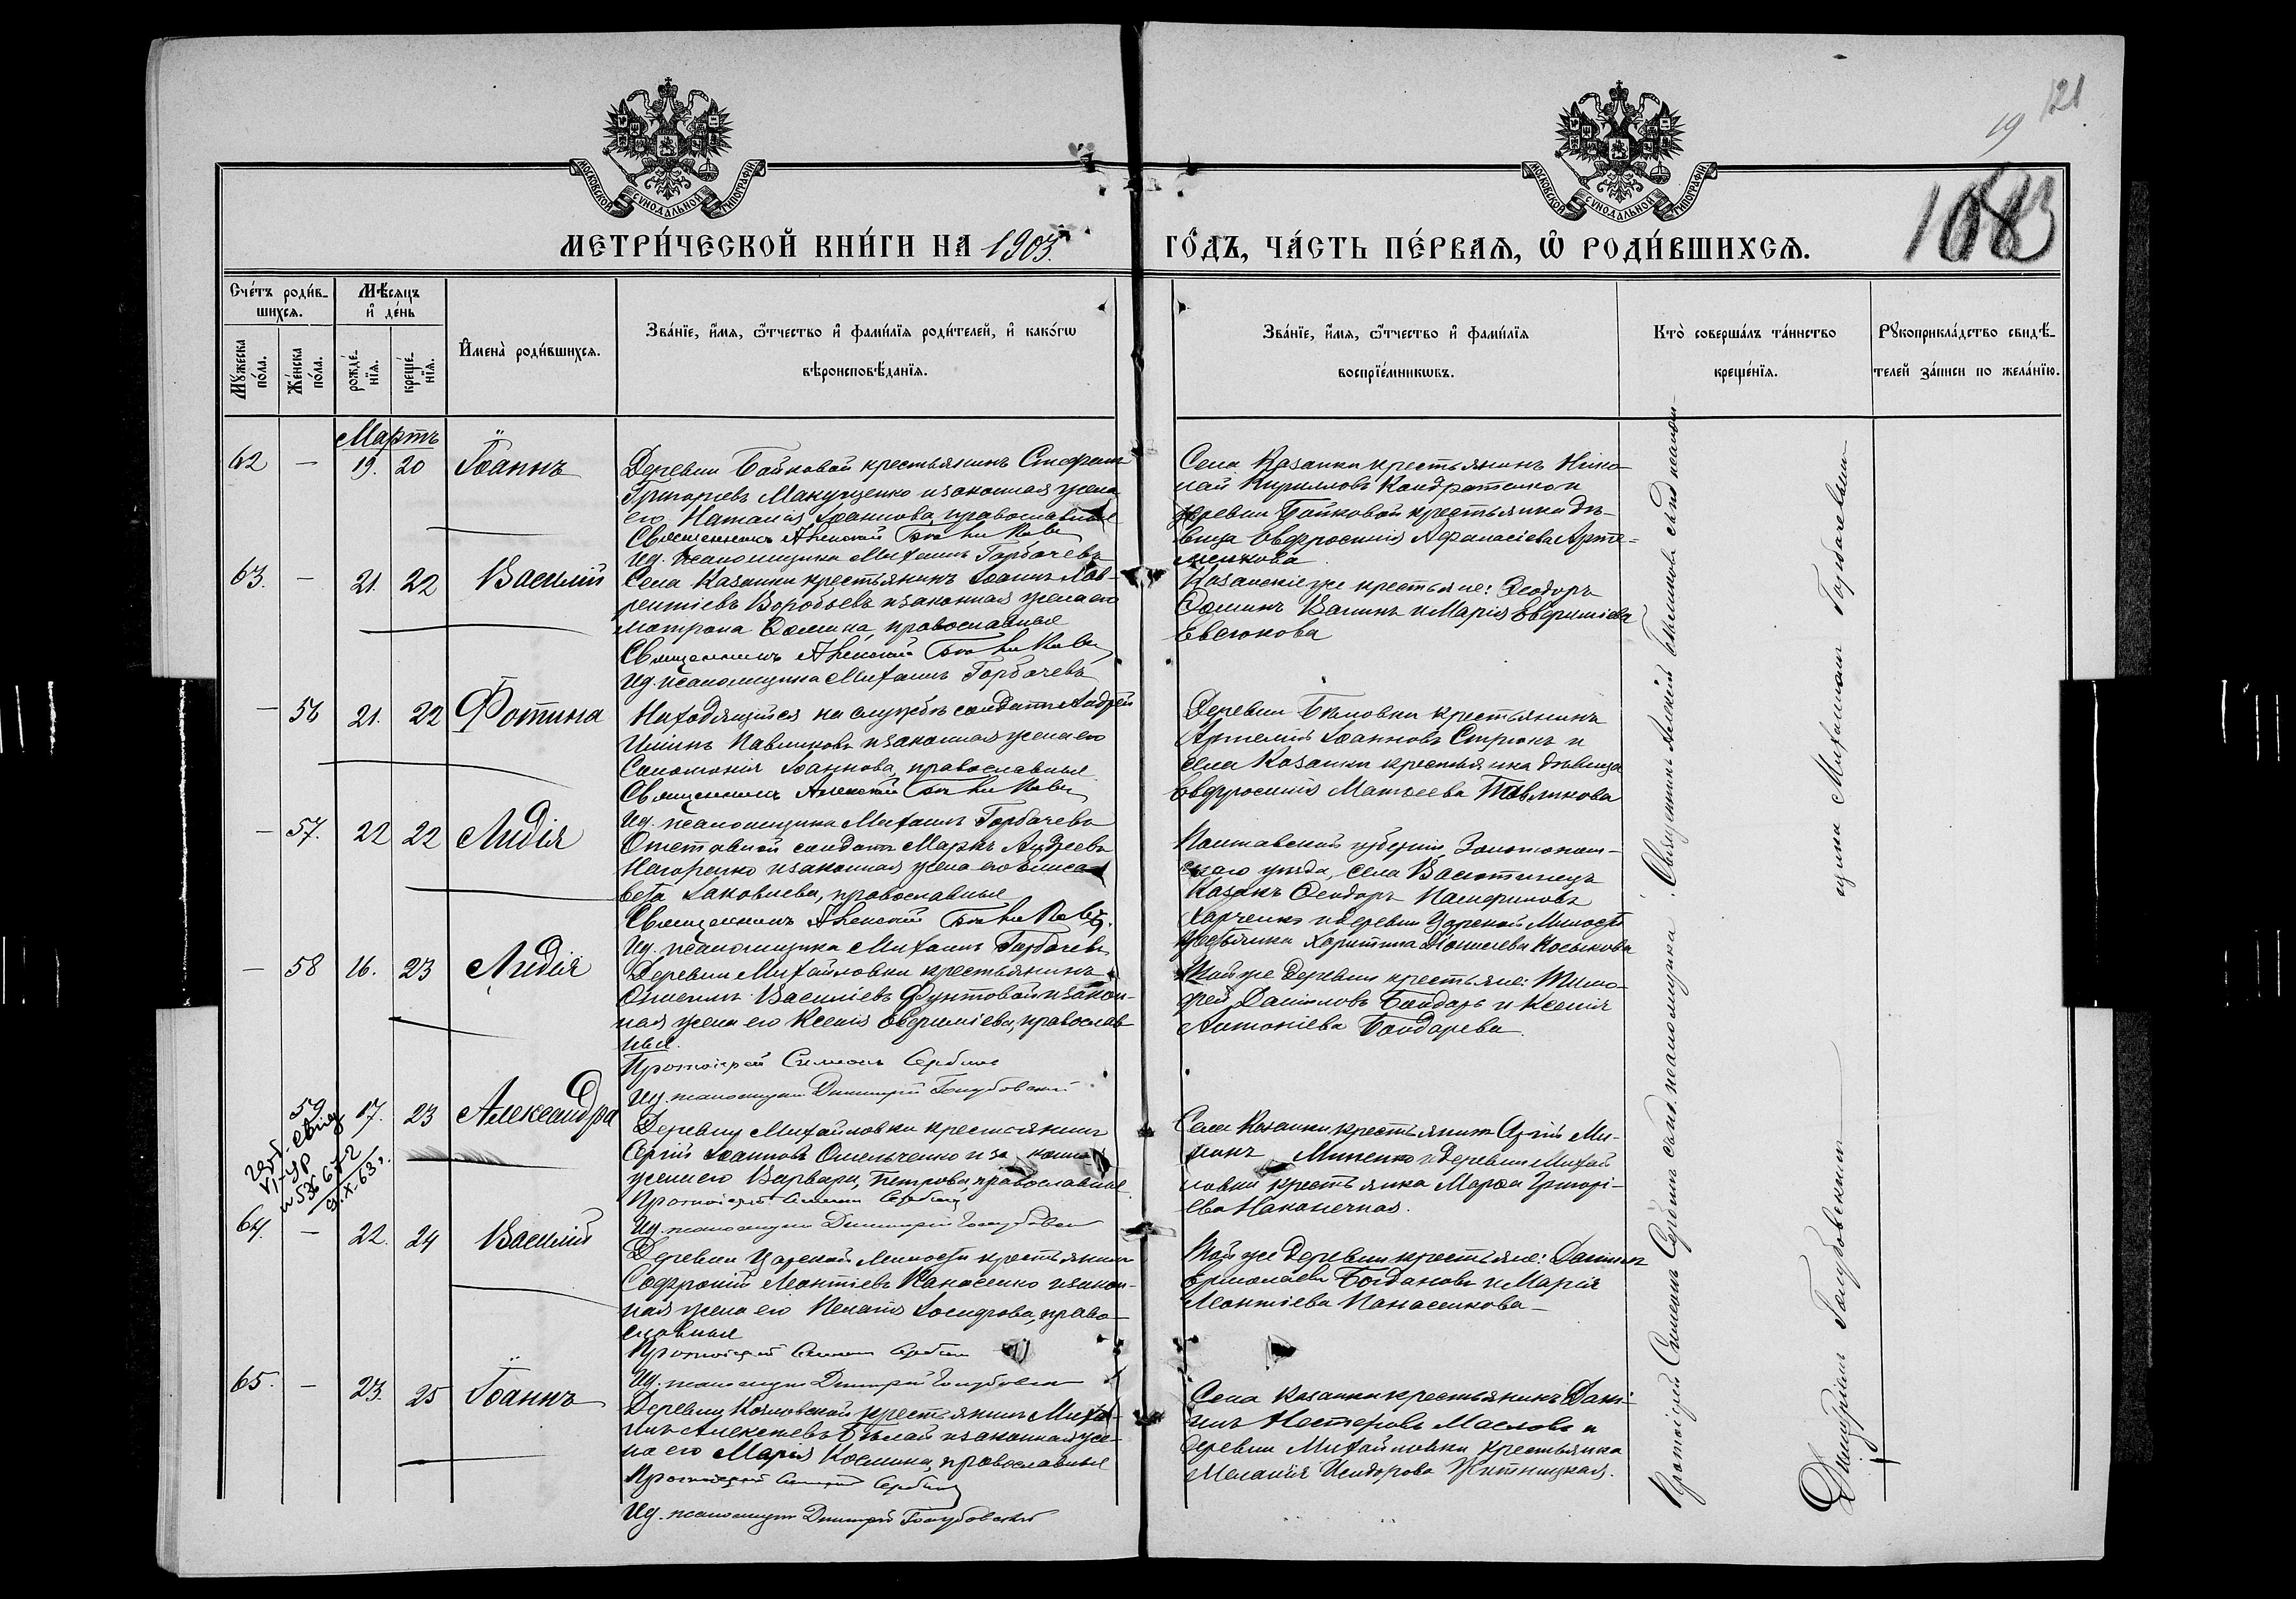 19 121
1683
МОСКОВСКОЙ СѴНОДАЛЬНОЙ ТИПОГРАФІИ.
МОСКОВСКОЙ СѴНОДАЛЬНОЙ ТИПОГРАФІИ.
МЕТРИ́ЧЕСКОЙ КНИ́ГИ НА 1903. ГО́ДЪ, ЧА́СТЬ ПЕ́РВАѦ, Ѡ҆ РОДИ́ВШИХСѦ.
Сче́тъ роди́в-
шихсѧ.
Мꙋ́жеска по́ла.
Же́нска по́ла.
Мѣ́сѧцъ
и҆ де́нь
рожде́-
нїѧ.
креще́-
нїѧ.
И҆мена̀ роди́вшихсѧ.
Зва́нїе, и҆́мѧ, ѻ҆́тчество и҆ фами́лїѧ роди́телей, и҆ како́гѡ
вѣроисповѣ́данїѧ.
Зва́нїе, и҆́мѧ, ѻ҆́тчество и҆ фами́лїѧ
воспрїе́мникѡвъ.
Кто̀ соверша́лъ та́инство
креще́нїѧ.
Рꙋкоприкла́дство свидѣ́-
телей за́писи по жела́нїю.
Мартъ
62 — 19. 20 Іоаннъ
Деревни Байковой крестьянинъ Стефанъ
Григорьевъ Макущенко и законная жена
его Наталія Іоаннова, православные
Священникъ Алексій
Ид. псаломщика Михаилъ Горбачевъ
Села Казанки крестьянинъ Нико-
лай Кирилловъ Кондратенко и
деревни Байковой крестьянка дѣ-
вица Евфросинія Афанасіева Арте-
менкова
63. — 21. 22 Василій
Села Казанки крестьянинъ Іоаннъ Лав-
рентіевъ Воробьевъ и законная жена его
Матрона Ѳомина, православные
Священникъ Алексій
Ид. псаломщика Михаилъ Горбачевъ
Казанскіе же крестьяне: Ѳеодоръ
Ѳоминъ Ванинъ и Марія Евфиміева
Евсюкова
— 56 21. 22 Фотина
Находящійся на службѣ солдатъ Андрей
Ильинъ Павликовъ и законная жена его
Соломонія Іоаннова, православные
Священникъ Алексій
Ид. псаломщика Михаилъ Горбачевъ
Деревни Бѣловки крестьянинъ
Артемій Іоанновъ Стрюкъ и
села Казанки крестьянка дѣвица
Евфросинія Матѳеева Павликова
— 57. 22 22 Лидія
Отставной солдатъ Маркъ Андреевъ
Нагоренко и законная жена его Елиса-
вета Іаковлева, православные
Священникъ Алексій
Ид. псаломщика Михаилъ Горбачевъ
Полтавской губерніи Золотонош-
скаго уѣзда, села Васютинецъ
Казакъ Ѳеодоръ Памфиловъ
Харченко и деревни Царской Милости
крестьянка Харитина Косыкова
— 58 16. 23 Лидія
Деревни Михайловки крестьянинъ
Василіевъ Фунтовой и закон-
ная жена его Ксенія Евфиміева, православ-
ные.
Протоіерей Симеонъ Сербинъ
Ид. псаломщика Димитрій Голубовскій
Той же деревни крестьяне: Тимо-
фей Даниловъ Бондарь и Ксенія
Антоніева Бондарева.
59 17. 23 Александра
Деревни Михайловки крестьянинъ
Сергій Іоанновъ Омельченко и законная
жена его Варвара Петрова, православные
Протоіерей Симеонъ Сербинъ
Ид. псаломщика Димитрій Голубовскій
Села Казанки крестьянинъ Сергій Ми-
Миненко и деревни Михай-
ловки крестьянка Марѳа Григорі-
ева Наконечная.
64. — 22. 24 Василій
Деревни Царской Милости крестьянинъ
Софроній Леонтіевъ Панасенко и закон-
ная жена его Пелагія Іосифова, право-
славные
Протоіерей Симеонъ Сербинъ
Ид. псаломщика Димитрій Голубовскій
Той же деревни крестьяне: Даніилъ
Ермолаевъ Богдановъ и Марія
Леонтіева Панасенкова
65. — 23. 25 Іоаннъ
Деревни Козловской крестьянинъ Миха-
илъ Алексѣевъ Бѣлай и законная же-
на его Марія Космина, православные
Протоіерей Симеонъ Сербинъ
Ид. псаломщика Димитрій Голубовскій
Села Казанки крестьянинъ Дані-
илъ Нестеровъ Масловъ и
деревни Михайловки крестьянка
Меланія Исидорова Житницкая.
Протоіерей Симеонъ Сербинъ съ и.д. псаломщика
Димитріемъ Голубовскимъ
Священникъ Алексій съ и.д. псалом-
щика Михаиломъ Горбачевымъ